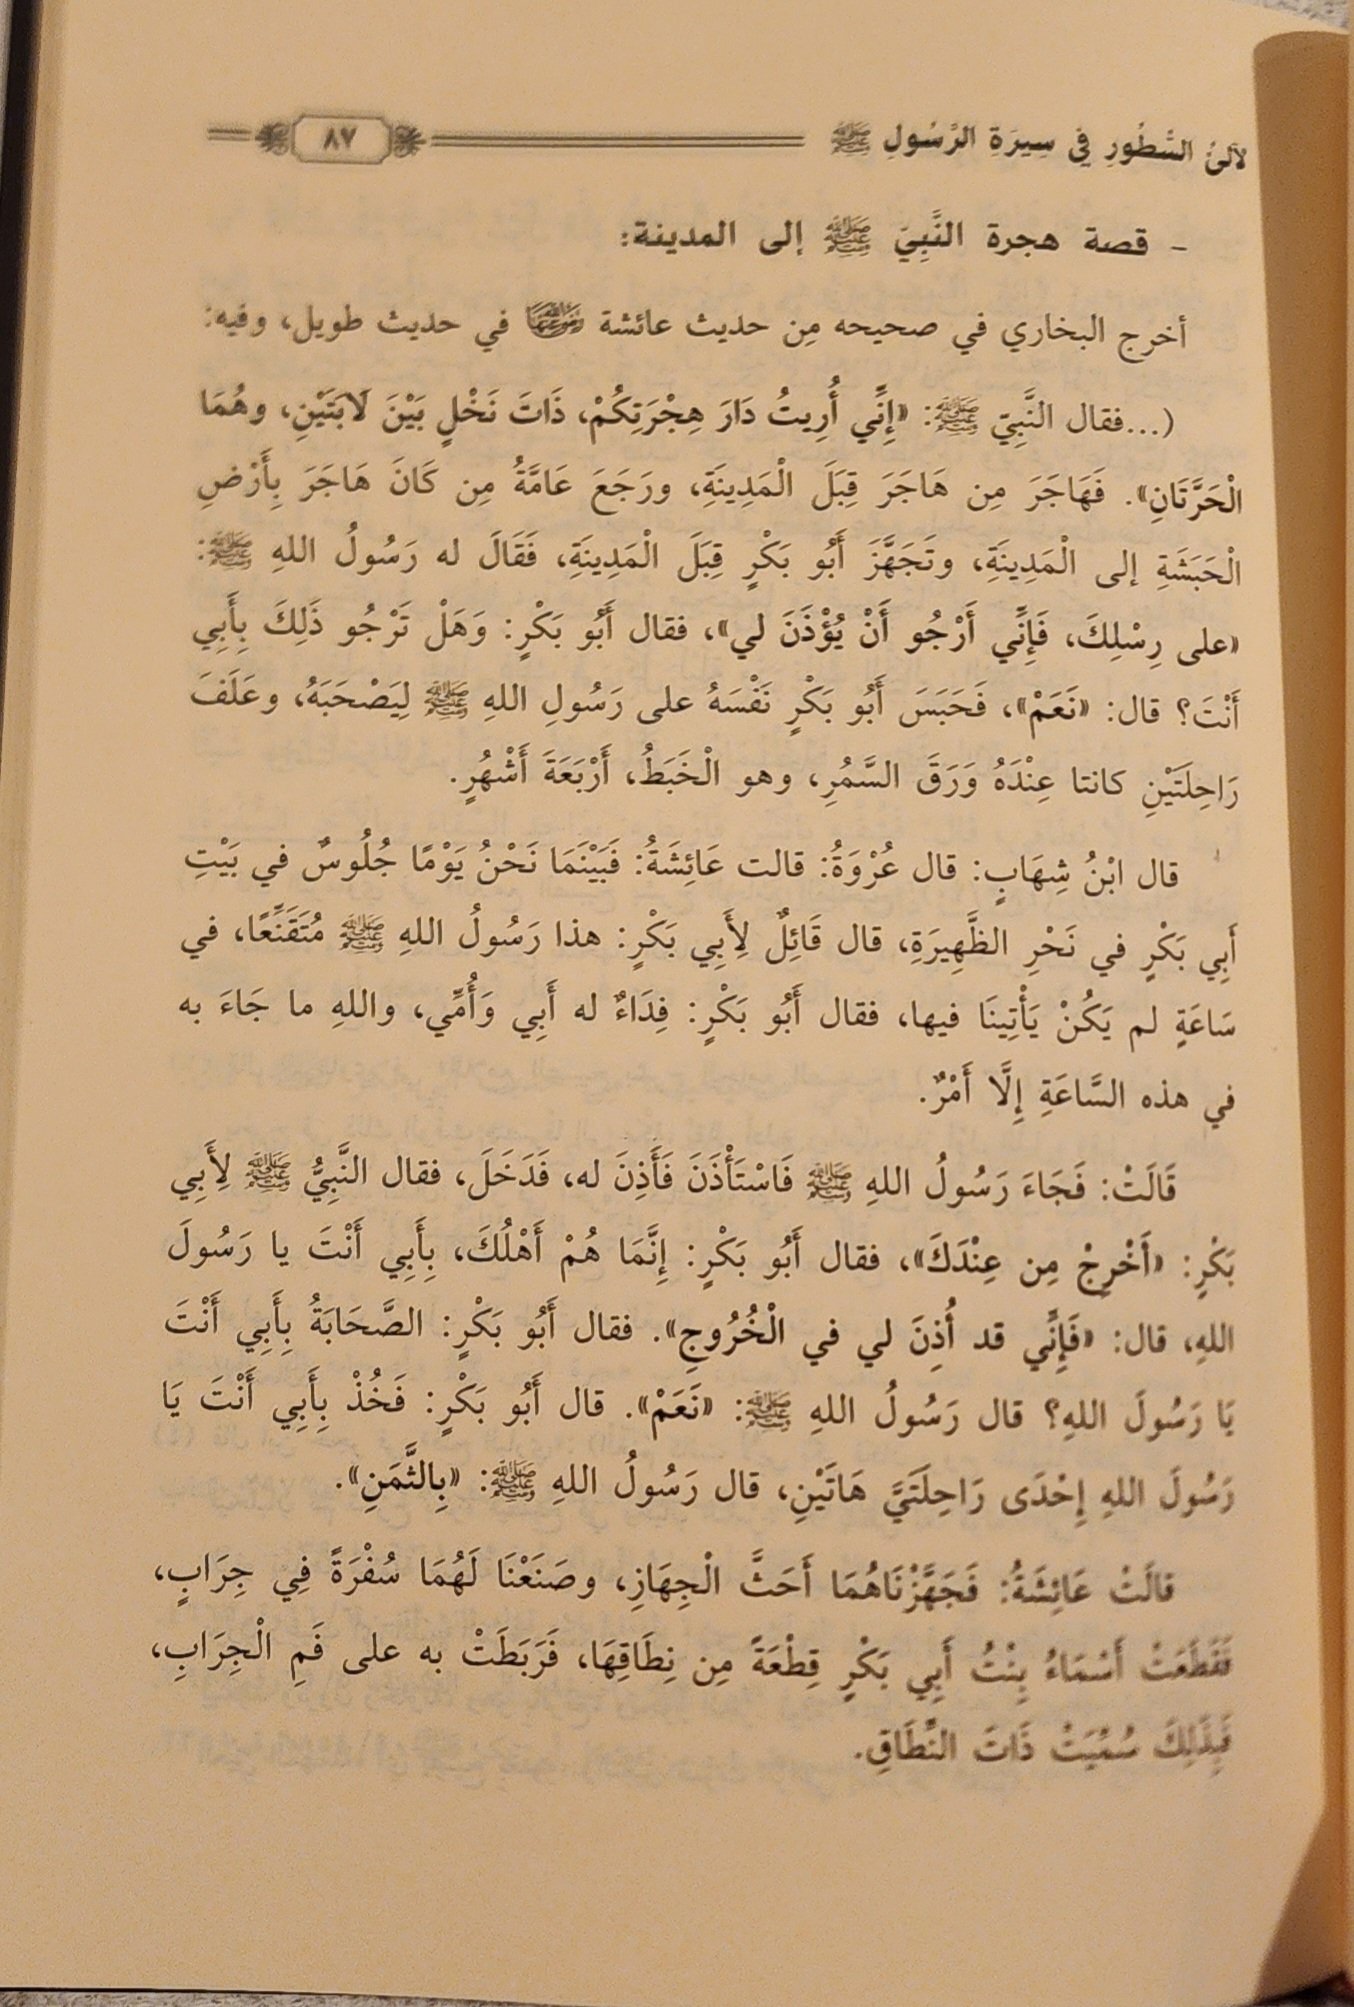 لآلئ السُّطُورِ فِي سِيرَةِ الرَّسُولِ ﷺ ٨٧
- قصة هجرة النَّبِيّ ﷺ إلى المدينة:
أخرج البخاري في صحيحه مِن حديث عائشة رضي الله عنها في حديث طويل، وفيه:
(...فقال النَّبِيّ ﷺ: «إِنِّي أُرِيتُ دَارَ هِجْرَتِكُمْ، ذَاتَ نَخْلٍ بَيْنَ لَابَتَيْنِ، وهُمَا
الْحَرَّتَانِ». فَهَاجَرَ مِن هَاجَرَ قِبَلَ الْمَدِينَةِ، ورَجَعَ عَامَّةُ مِن كَانَ هَاجَرَ بِأَرْضِ
الْحَبَشَةِ إلى الْمَدِينَةِ، وتَجَهَّزَ أَبُو بَكْرٍ قِبَلَ الْمَدِينَةِ، فَقَالَ له رَسُولُ اللهِ ﷺ:
«على رِسْلِكَ، فَإِنِّي أَرْجُو أَنْ يُؤْذَنَ لي»، فقال أَبُو بَكْرٍ: وَهَلْ تَرْجُو ذَلِكَ بِأَبِي
أَنْتَ؟ قال: «نَعَمْ»، فَحَبَسَ أَبُو بَكْرٍ نَفْسَهُ على رَسُولِ اللهِ ﷺ لِيَصْحَبَهُ، وعَلَفَ
رَاحِلَتَيْنِ كانتا عِنْدَهُ وَرَقَ السَّمُرِ، وهو الْخَبَطُ، أَرْبَعَةَ أَشْهُرٍ.
قال ابْنُ شِهَابٍ: قال عُرْوَةُ: قالت عَائِشَةُ: فَبَيْنَمَا نَحْنُ يَوْمًا جُلُوسٌ في بَيْتِ
أَبِي بَكْرٍ في نَحْرِ الظَّهِيرَةِ، قال قَائِلٌ لِأَبِي بَكْرٍ: هذا رَسُولُ اللهِ ﷺ مُتَقَنِّعًا، في
سَاعَةٍ لم يَكُنْ يَأْتِينَا فيها، فقال أَبُو بَكْرٍ: فِدَاءٌ له أَبِي وَأُمِّي، واللهِ ما جَاءَ به
في هذه السَّاعَةِ إِلَّا أَمْرٌ.
قَالَتْ: فَجَاءَ رَسُولُ اللهِ ﷺ فَاسْتَأْذَنَ فَأَذِنَ له، فَدَخَلَ، فقال النَّبِيُّ ﷺ لِأَبِي
بَكْرٍ: «أَخْرِجْ مِن عِنْدَكَ»، فقال أَبُو بَكْرٍ: إِنَّمَا هُمْ أَهْلُكَ، بِأَبِي أَنْتَ يا رَسُولَ
اللهِ، قال: «فَإِنِّي قد أُذِنَ لي في الْخُرُوجِ». فقال أَبُو بَكْرٍ: الصَّحَابَةُ بِأَبِي أَنْتَ
يَا رَسُولَ اللهِ؟ قال رَسُولُ اللهِ ﷺ: «نَعَمْ». قال أَبُو بَكْرٍ: فَخُذْ بِأَبِي أَنْتَ يَا
رَسُولَ اللهِ إِحْدَى رَاحِلَتَيَّ هَاتَيْنِ، قال رَسُولُ اللهِ ﷺ: «بِالثَّمَنِ».
قالَتْ عَائِشَةُ: فَجَهَّزْنَاهُمَا أَحَثَّ الْجِهَازِ، وصَنَعْنَا لَهُمَا سُفْرَةً فِي جِرَابٍ،
فَقَطَعَتْ أَسْمَاءُ بِنْتُ أَبِي بَكْرٍ قِطْعَةً مِن نِطَاقِهَا، فَرَبَطَتْ به على فَمِ الْجِرَابِ،
فَبِذَلِكَ سُمِّيَتْ ذَاتَ النِّطَاقِ.